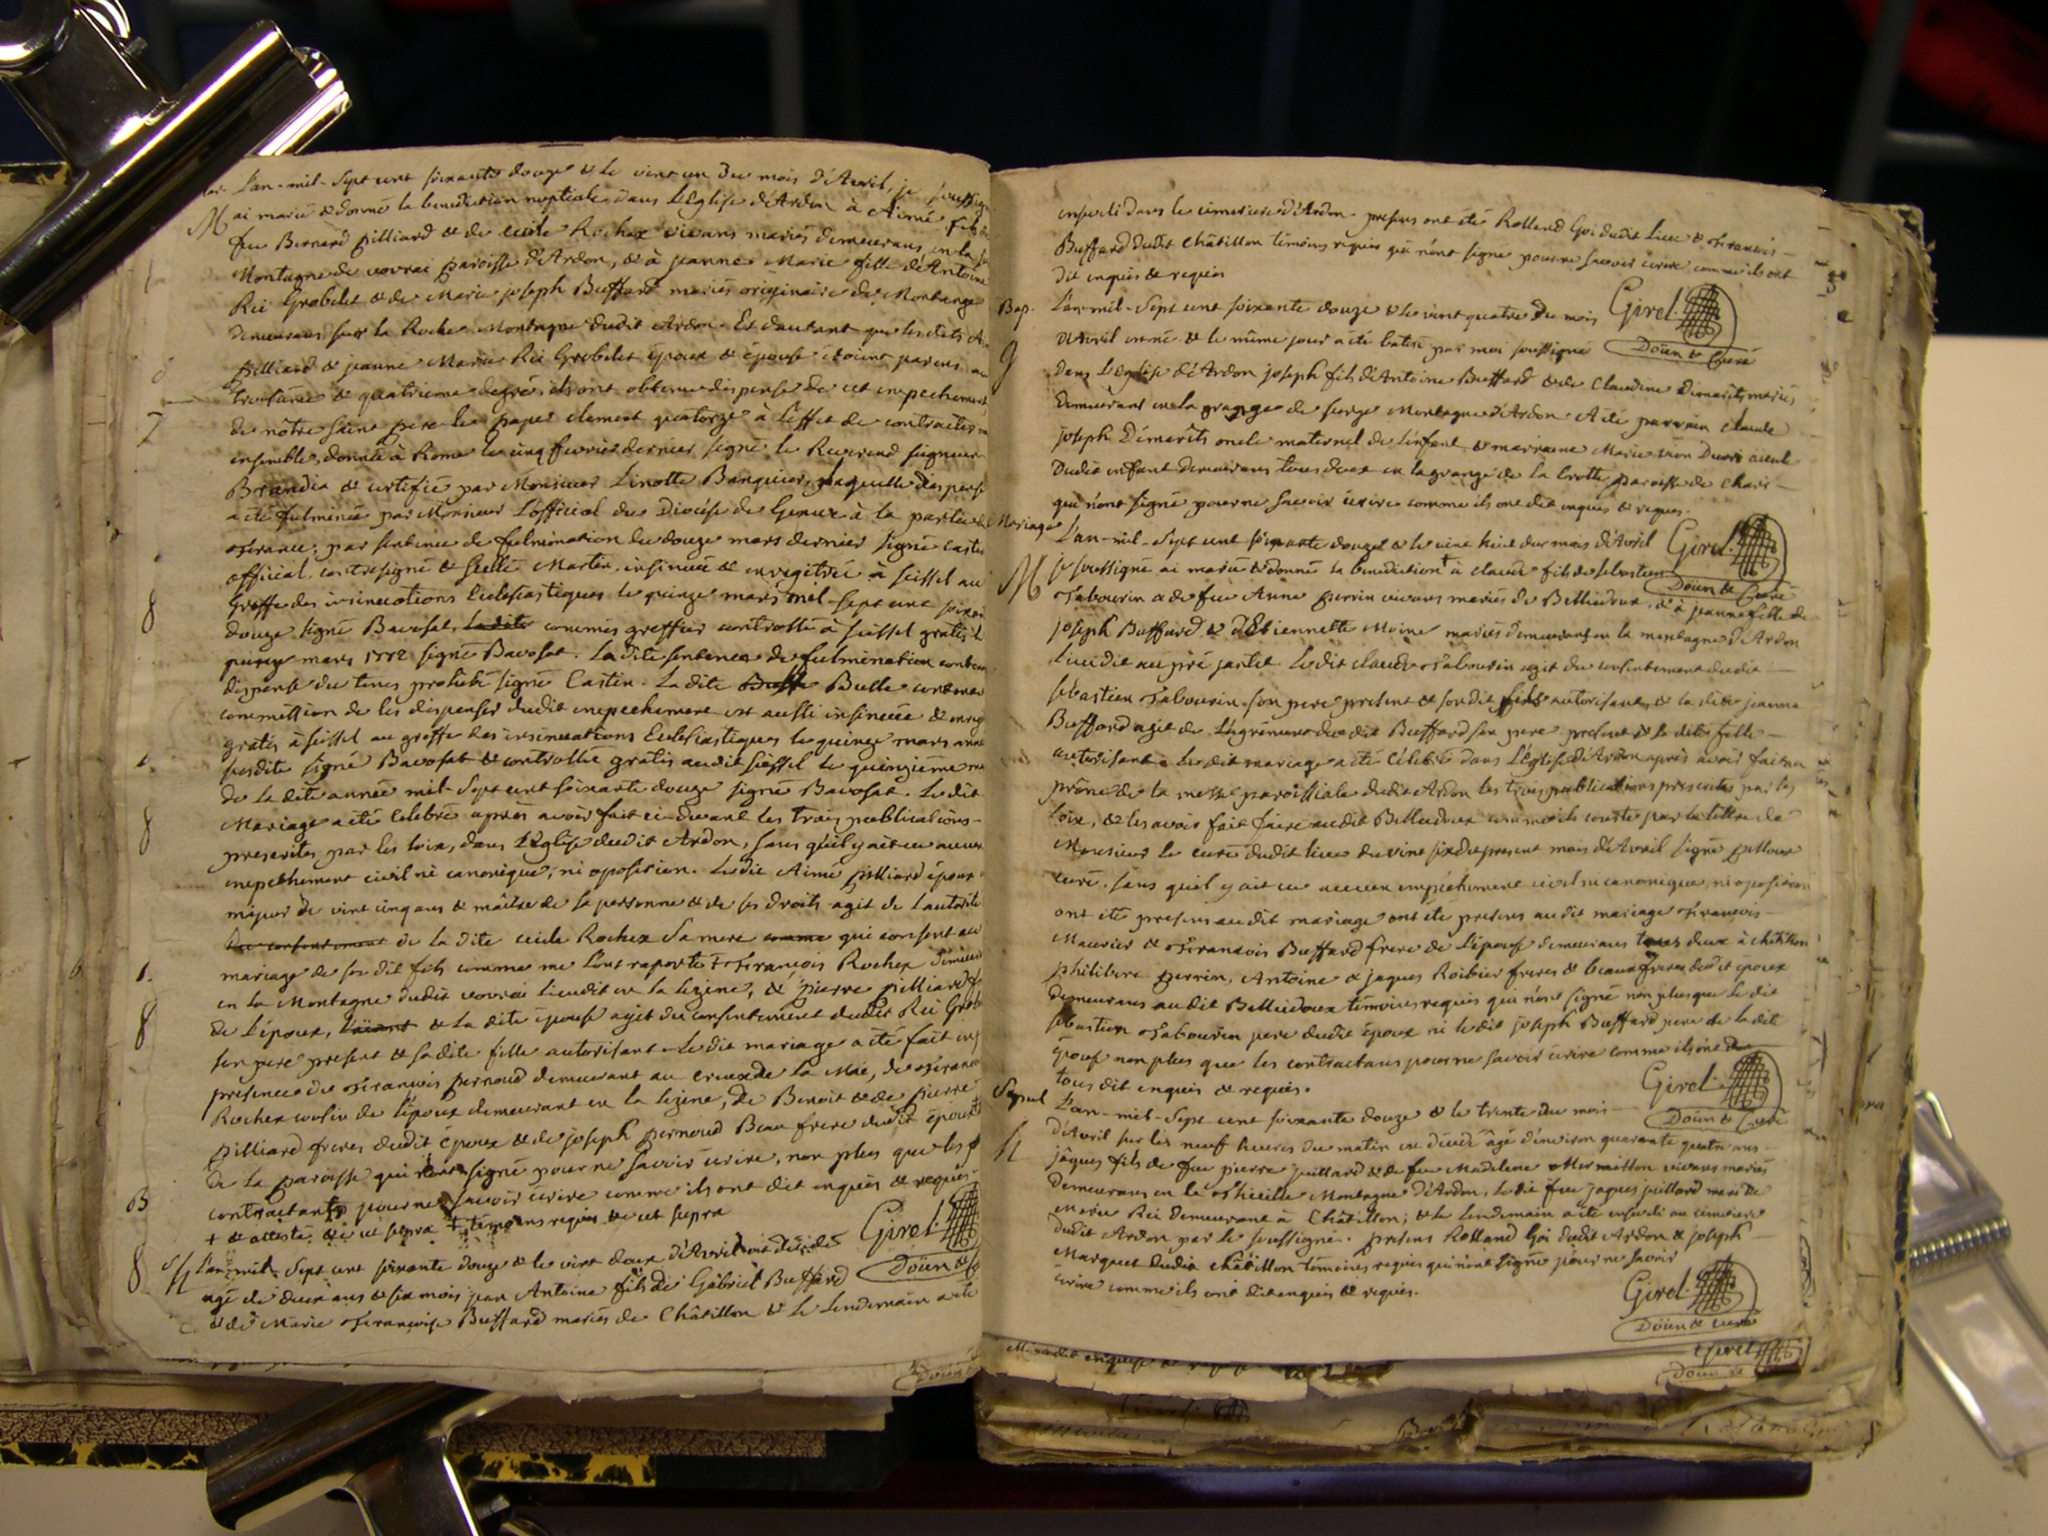 L'an-mil-Sept cent soixante douze & le vint un du mois d'Avril, je soussigné
M ai marié & donné la benediction nuptiale dans L'Eglise d'Ardon à Aimé fils de
feu Bernard pilliard & de cecile Rochex vivans mariés demeurans en la
Montagne de vovrai paroisse d'Ardon, & à jeanne Marie fille d'Antoine
Rei Grobelet & de Marie joseph Buffard mariés originaire de Montange
demeurans sur la Roche Montagne dudit Ardon. Et d'autant que lesdits
pilliard & jeanne Marie Rei Grobelet époux & épouse étoient parens au
troisieme & quatrieme degré, ils ont obtenu dispense de cet empechement
de nôtre saint pere le pape clement quatorze à l'effet de contracter
ensemble, donnée à Rome le cinq fevrier dernier signé le Reverend seigneur
Brandia & certifié par Monsieur Linotte Banquier, laquelle dispense
a été fulminée par Monsieur L'official du Diocése de Geneve à la partie de
France, par sentence de fulmination du douze mars dernier signé Castin
official, contresigné & scellé Martin, insinuée & enregitrée à seissel au
Greffe des insinuations Eclesiastiques le quinze mars mil-sept cent soixante
douze signé Bavosat, ladite commis greffier controllé à seissel gratis le
quinze mars 1772 signé Bavosat. La dite sentence de fulmination
dispense du tems prohibé signé Castin. La dite Bulle Bulle contenant
commission de les dispenser dudit empechement est aussi insinuée & enreg
gratis à seissel au greffe des insinuations Eclesiastiques le quinze mars année
susdite signé Bavosat & controllée gratis audit seissel le quinziéme
de la dite année mil-Sept cent soixante douze signé Bavosat. Le dit
Mariage a été celebré après avoir fait ci-devant les trois publications
prescrites par les loix, dans L'Eglise dudit Ardon, sans qu'il y ait eu aucun
empechement civil ni canonique, ni oposition. Ledit Aimé pilliard époux
majeur de vint cinq ans & maître de sa personne & de ses droits agit de l'autorité
du consentement de la dite cecile Rochex sa mere comme qui consent au
mariage de son dit fils comme me l'ont raporté + François Rochex
en la Montagne dudit vovrai lieudit en la lezine, & pierre pilliard
de l'époux, & la dite épouse agit du consentement dudit Rei Grob
son pere present & sa dite fille autorisant. Le dit mariage a été fait en
presence de François pernoud demeurant au creux de la Mae, de François
Rochex cousin de l'époux demeurant en la lezine, de Benoit & de pierre
pilliard freres dudit époux & de joseph pernoud Beau frere dudit époux
de la paroisse qui n'ont signé pour ne savoir écrire, non plus que les
contractants pour ne savoir écrire comme ils ont dit enquis & requis
+ & attesté & ci sepra + témoins requis & ci sepra
Girel
Doïen &
S L'an-mil-Sept cent soixante douze & le vint deux d'Avril
agé de deux ans & six mois Jean Antoine fils de Gabriel Buffard
& de Marie Françoise Buffard mariés de Châtillon & le lendemain a été
enseveli dans le cimetiere d'Ardon. presens ont été Rolland Goi dudit lieu & François
Buffard dudit Châtillon témoins requis qui n'ont signé pour ne savoir écrire comme ils ont
dit enquis & requis
Girel
Doïen & Curé
Bap. L'an-mil-Sept cent soixante douze & le vint quatre du mois
d'Avril est né & le même jour a été batisé par moi soussigné
dans L'Eglise d'Ardon joseph fils d'Antoine Buffard & de Claudine Démarêts mariés
demeurans en la grange de forge Montagne d'Ardon. A été parrain claude
joseph Démarêts oncle maternel de l'enfant & marraine Marie aieule
dudit enfant demeurans tous deux en la grange de la Crotte paroisse de
qui n'ont signé pour ne savoir écrire comme ils ont dit enquis & requis.
Girel
Doïen & Curé
Mariage L'an-mil-Sept cent soixante douze & le vint huit du mois d'Avril
M je soussigné ai marié & donné la benediction + à claude fils de sebastien
Tabourin & de feu Anne perrin vivans mariés de Bellecdoux, & à jeanne fille de
joseph Buffard & d'Etiennette Moine mariés demeurans en la montagne d'Ardon
lieu dit au pré jantet. Le dit claude Tabourin agit du consentement dudit
sebastien Tabourin son pere present & son dit fils autorisant, & la dite jeanne
Buffard agit de l'agrément du dit Buffard son pere present & la dite fille
autorisant. Le dit mariage a été célebré dans L'Eglise d'Ardon après avoir fait au
prône de la messe paroissiale dudit Ardon les trois publications prescrites par les
loix, & les avoir fait faire audit Bellecdoux comme ils conste par la lettre de
Monsieur le curé dudit lieu du vint six du present mois d'Avril signé
curé. sans qu'il y ait eu aucun empéchement civil ni canonique, ni oposition
ont été presens audit mariage ont été presens au dit mariage François
Maurier & François Buffard frere de l'épouse demeurans tous deux à châtillon
philibert perrin, Antoine & jaques Roibier freres & beaux freres dudit époux
demeurans audit Bellecdoux témoins requis qui n'ont signé non plus que le dit
sébastien Tabourin pere dudit époux ni le dit joseph Buffard pere de la dite
épouse non plus que les contractans pour ne savoir écrire comme ils ont
tous dit enquis & requis.
Girel
Doïen & Curé
Sepul L'an-mil-Sept cent soixante douze & le trente du mois
d'Avril sur les neuf heures du matin est décedé âgé d'environ quarante quatre ans
jâques fils de feu pierre juillard & de feu Madeleine Mermillon vivans mariés
demeurans en la Montagne d'Ardon, Le dit feu jaques juillard mari de
Marie Rei demeurant à Châtillon; & le lendemain a été enseveli au cimetiere
dudit Ardon par le soussigné. presens Rolland Goi dudit Ardon & joseph
Marquet dudit châtillon témoins requis qui n'ont signé pour ne savoir
écrire comme ils ont dit enquis & requis.
Girel
Doïen & curé